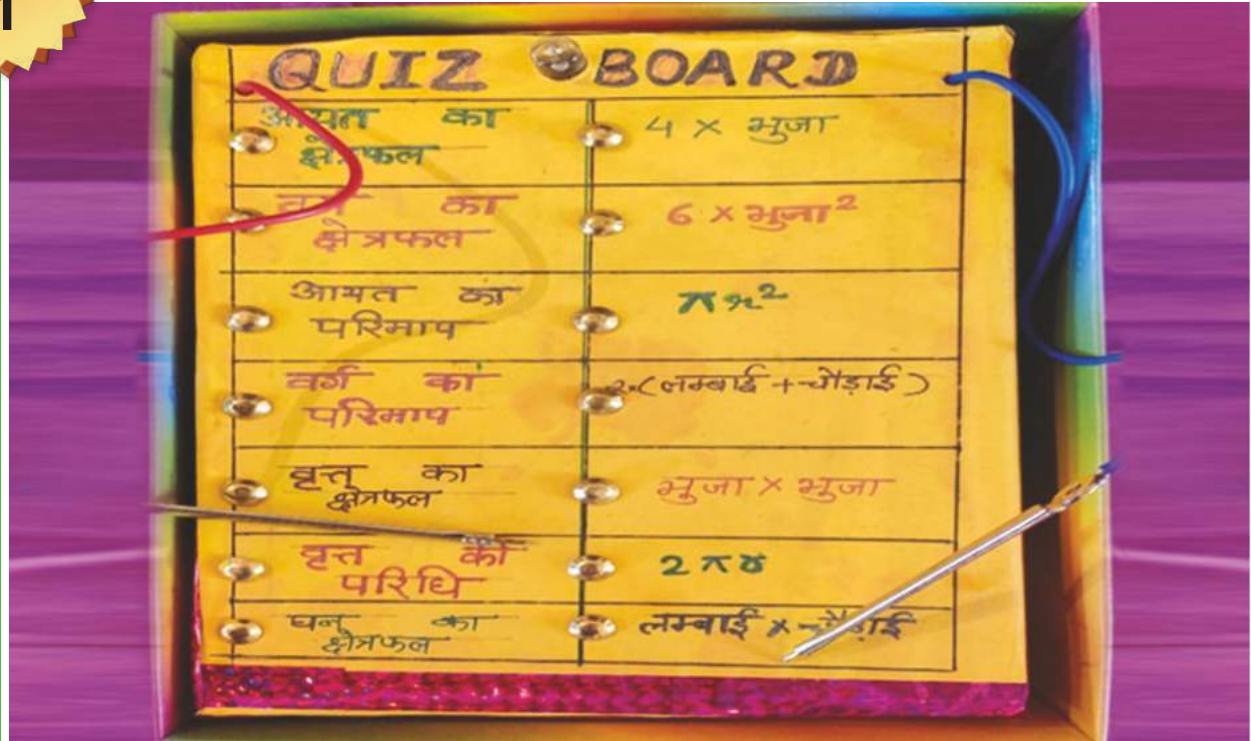 QUIZ BOARD
आयत का
क्षेत्रफल
4 × भुजा
वर्ग का
क्षेत्रफल
6 × भुजा²
आयत का
परिमाप
πr²
वर्ग का
परिमाप
2.(लम्बाई + चौड़ाई)
वृत्त का
क्षेत्रफल
भुजा × भुजा
वृत्त की
परिधि
2πr
घन का
क्षेत्रफल
लम्बाई × चौड़ाई